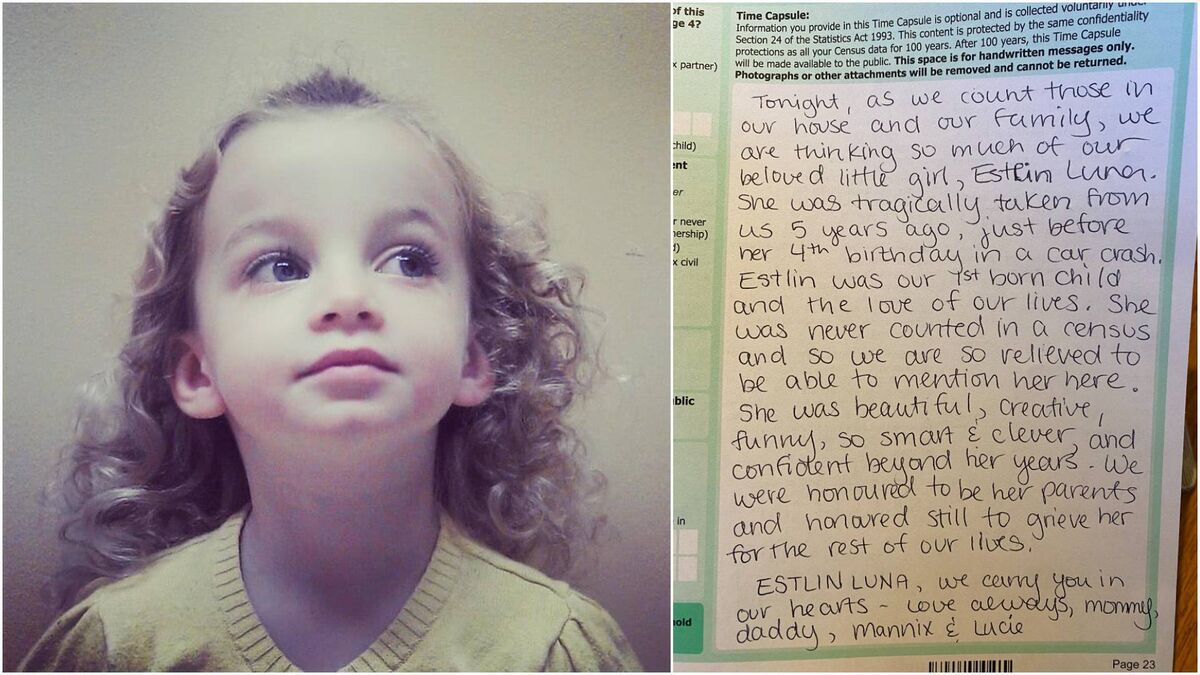 of this
ge 4?
x partner)
child)
ent
er
r never
nership)
d)
x civil
ublic
in
hold
Time Capsule:
Information you provide in this Time Capsule is optional and is collected voluntarily under
Section 24 of the Statistics Act 1993. This content is protected by the same confidentiality
protections as all your Census data for 100 years. After 100 years, this Time Capsule
will be made available to the public. This space is for handwritten messages only.
Photographs or other attachments will be removed and cannot be returned.
Tonight, as we count those in
our house and our family, we
are thinking so much of our
beloved little girl, Estlin Luna.
She was tragically taken from
us 5 years ago, just before
her 4th birthday in a car crash.
Estlin was our 1st born child
and the love of our lives. She
was never counted in a census
and so we are so relieved to
be able to mention her here.
She was beautiful, creative,
funny, so smart & clever, and
confident beyond her years. We
were honoured to be her parents
and honoured still to grieve her
for the rest of our lives.
ESTLIN LUNA, we carry you in
our hearts - Love always, mommy,
daddy, Mannix & Lucie
Page 23